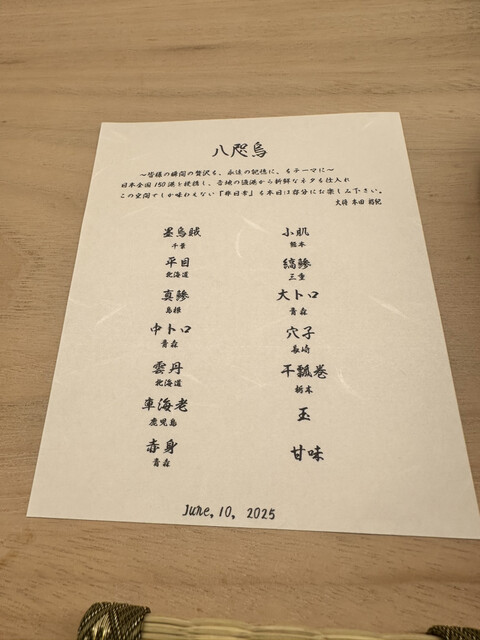 八咫烏
～皆様の瞬間の贅沢を、永遠の記憶に、をテーマに～
日本全国150港を し、各地の漁港から新鮮なネタを仕入れ
この空間でしか味わえない『非日常』を本日は存分にお楽しみ下さい。
大将 本田
墨烏賊
千葉
平目
北海道
真鯵
島根
中トロ
青森
雲丹
北海道
車海老
鹿児島
赤身
青森
小肌
熊本
縞鯵
三重
大トロ
青森
穴子
長崎
干瓢巻
栃木
玉
甘味
June, 10, 2025